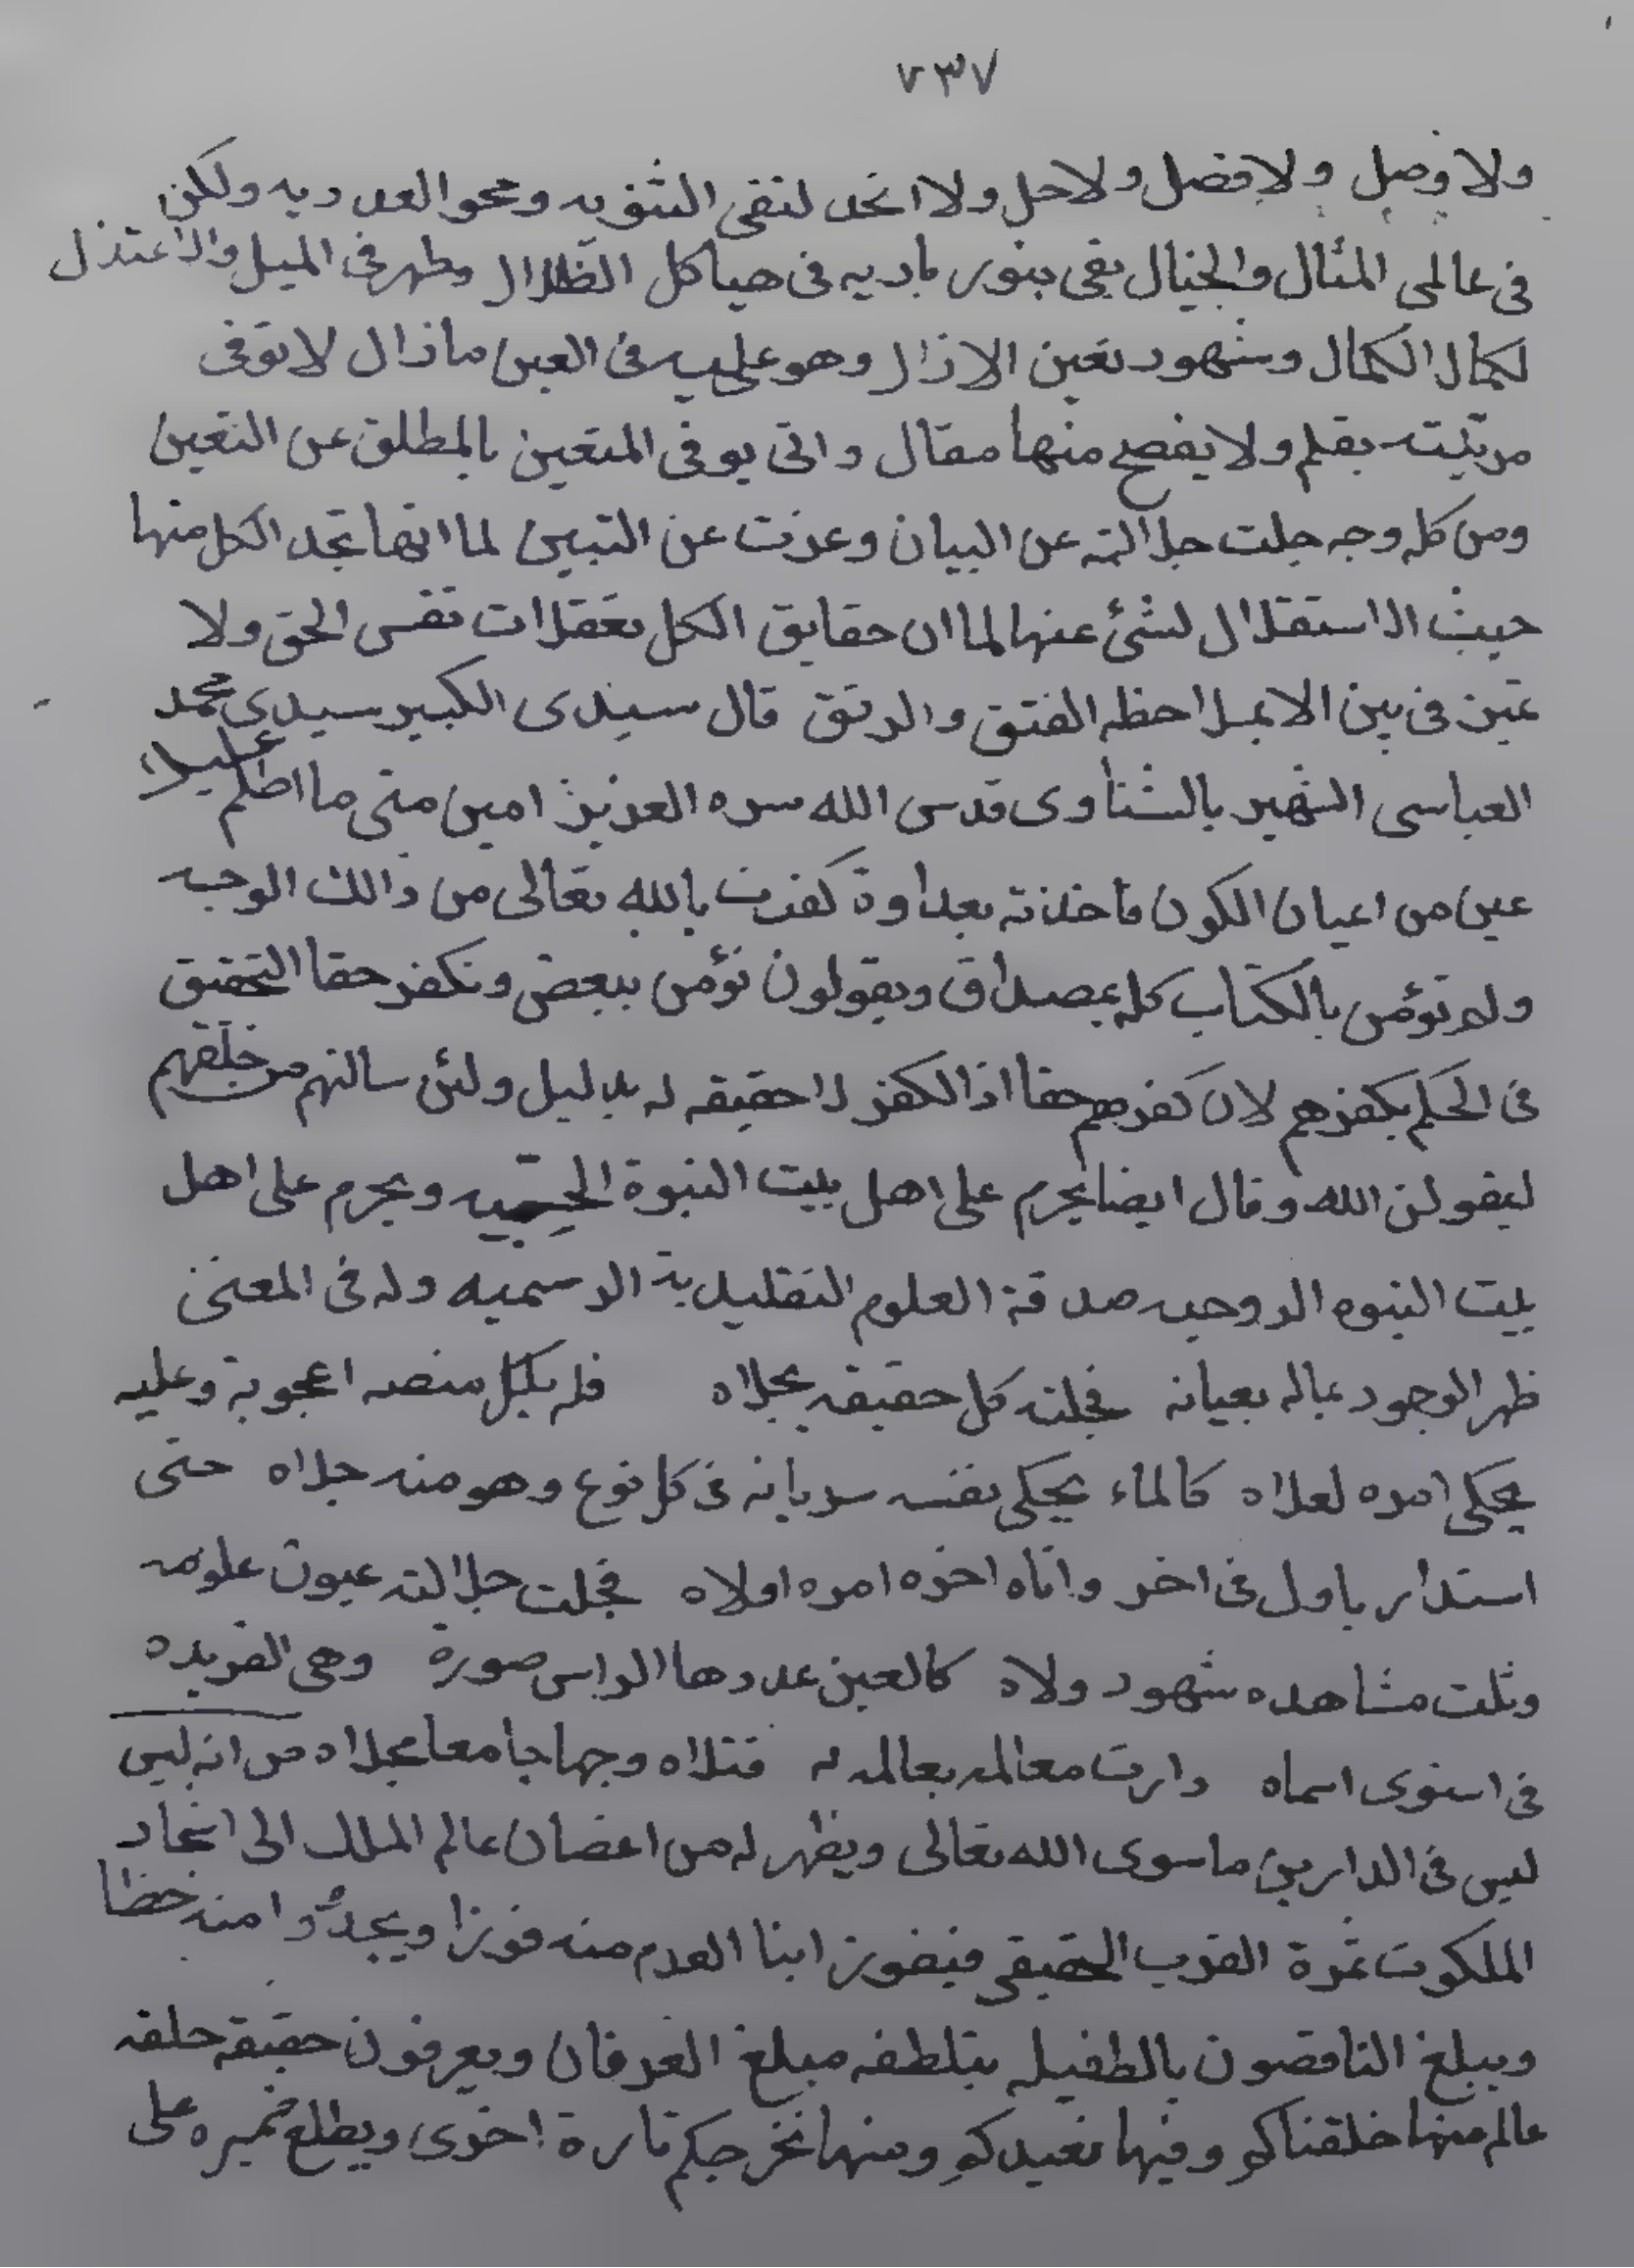 ٧٣٧
ولا وصل ولا فصل ولا حل ولا اتحد لنفى الثنويه ومحو العدديه ولكن
فى عالمى المثال والخيال بقى بنور باديه فى هياكل الظلال وظهر فى الميل والاعتدل
لكمال الكمال وشهود تعين الازال وهو علىه فى العين مازال لا توفى
مرتبته بقلم ولا يفصح منها مقال وانى يوفى المتعين بالمطلق عن التعين
ومن كل وجه جلت جلالته عن البيان وعزت عن التبيين لما انها تجد الكل منها
حيث الاستقلال لشئ عنها لما ان حقايق الكل تعقلات نفس الحق ولا
تمين فى بين الا بملاحظه الفتق والرتق قال سيدى الكبير سيدى محمد
العباسى الشهير بالشناوى قدس الله سره العزيز امين متى ما اظلم عليك
عين من اعيان الكون فاخذته بعداوة كفرت بالله تعالى من ذالك الوجه
ولم تؤمن بالكتاب كله بمصداق ويقولون نؤمن ببعض ونكفر حقا التحقق
فى الحكم بكفرهم لان كفرهم حقا اذ الكفر لا حقيقه له بدليل ولئن سالتهم من خلقهم
ليقولن الله وقال ايضا يحرم على اهل بيت النبوة الجسميه ويحرم على اهل
بيت النبوه الروحيه صدقة العلوم التقليدية الرسميه وله فى المعنى
ظهر الوجود بماله بعيانه فجلته كل حقيقه بجلاه فله بكل منصه اعجوبة وعليه
يحكى امره لعلاه كالماء يحكى نفسه سريانه فى كل نوع وهو منه جلاه حتى
استدار باول فى اخر واتاه اخره امره اولاه فجلت جلالته عيون علومه
وتلت مشاهده شهود ولاه كالعين عددها الراسى صورة وهى الفريده
فى استوى اسماه دارت معالمه بعالمه له فتلاه وجها جامعا مجلاه من انه ليس
ليس فى الدارين ما سوى الله تعالى ويظهر له من اغصان عالم الملك الى اشجار
الملكوت ثمرة القرب الحقيقى فيفوز ابنا العدم منه فوزا ويجدوا منه حظا
ويبلغ الناقصون بالطفيله بتلطفه مبلغ العرفان ويعرفون حقيقة خلقه
عالم منها خلقناكم وفيها نعيدكم ومنها نخرجكم تارة اخرى ويطلع ضميره على